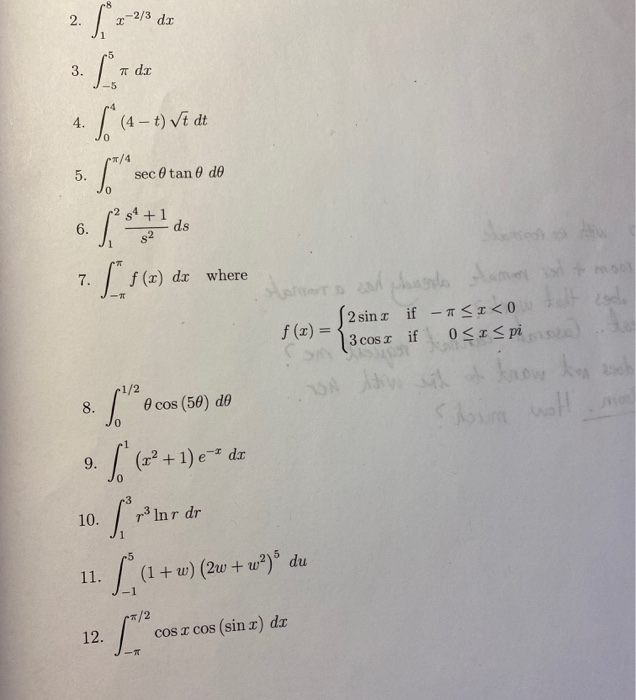 2. ∫₁⁸ x^{-2/3} dx
3. ∫₋₅⁵ π dx
4. ∫₀⁴ (4 − t) √t dt
5. ∫₀^{π/4} sec θ tan θ dθ
6. ∫₁² (s⁴ + 1)/s² ds
7. ∫_{−π}^{π} f (x) dx where
f (x) = { 2 sin x if − π ≤ x < 0
3 cos x if 0 ≤ x ≤ pi
8. ∫₀^{1/2} θ cos (5θ) dθ
9. ∫₀¹ (x² + 1) e^{−x} dx
10. ∫₁³ r³ ln r dr
11. ∫₋₁⁵ (1 + w) (2w + w²)⁵ du
12. ∫_{−π}^{π/2} cos x cos (sin x) dx